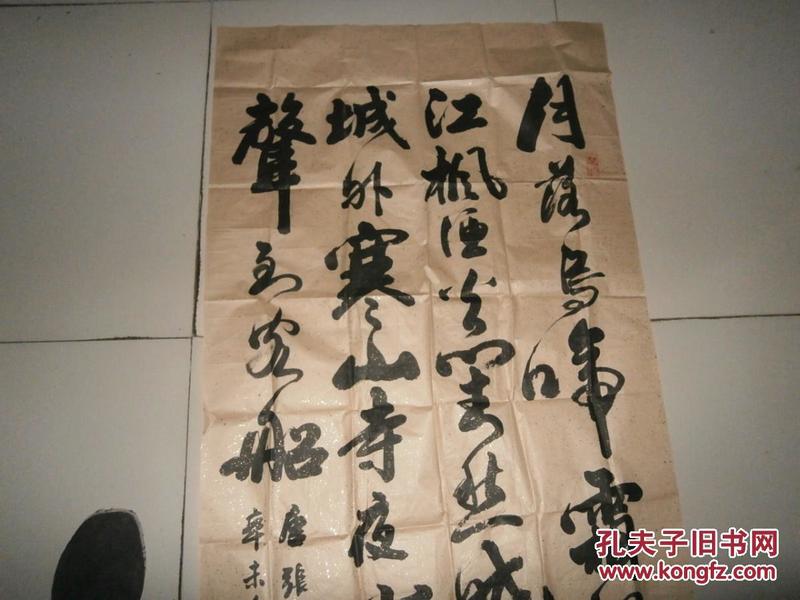 月落烏啼霜
江楓漁火對愁眠
城外寒山寺夜半
聲到客船
唐張
辛未
孔夫子旧书网
www.kongfz.com